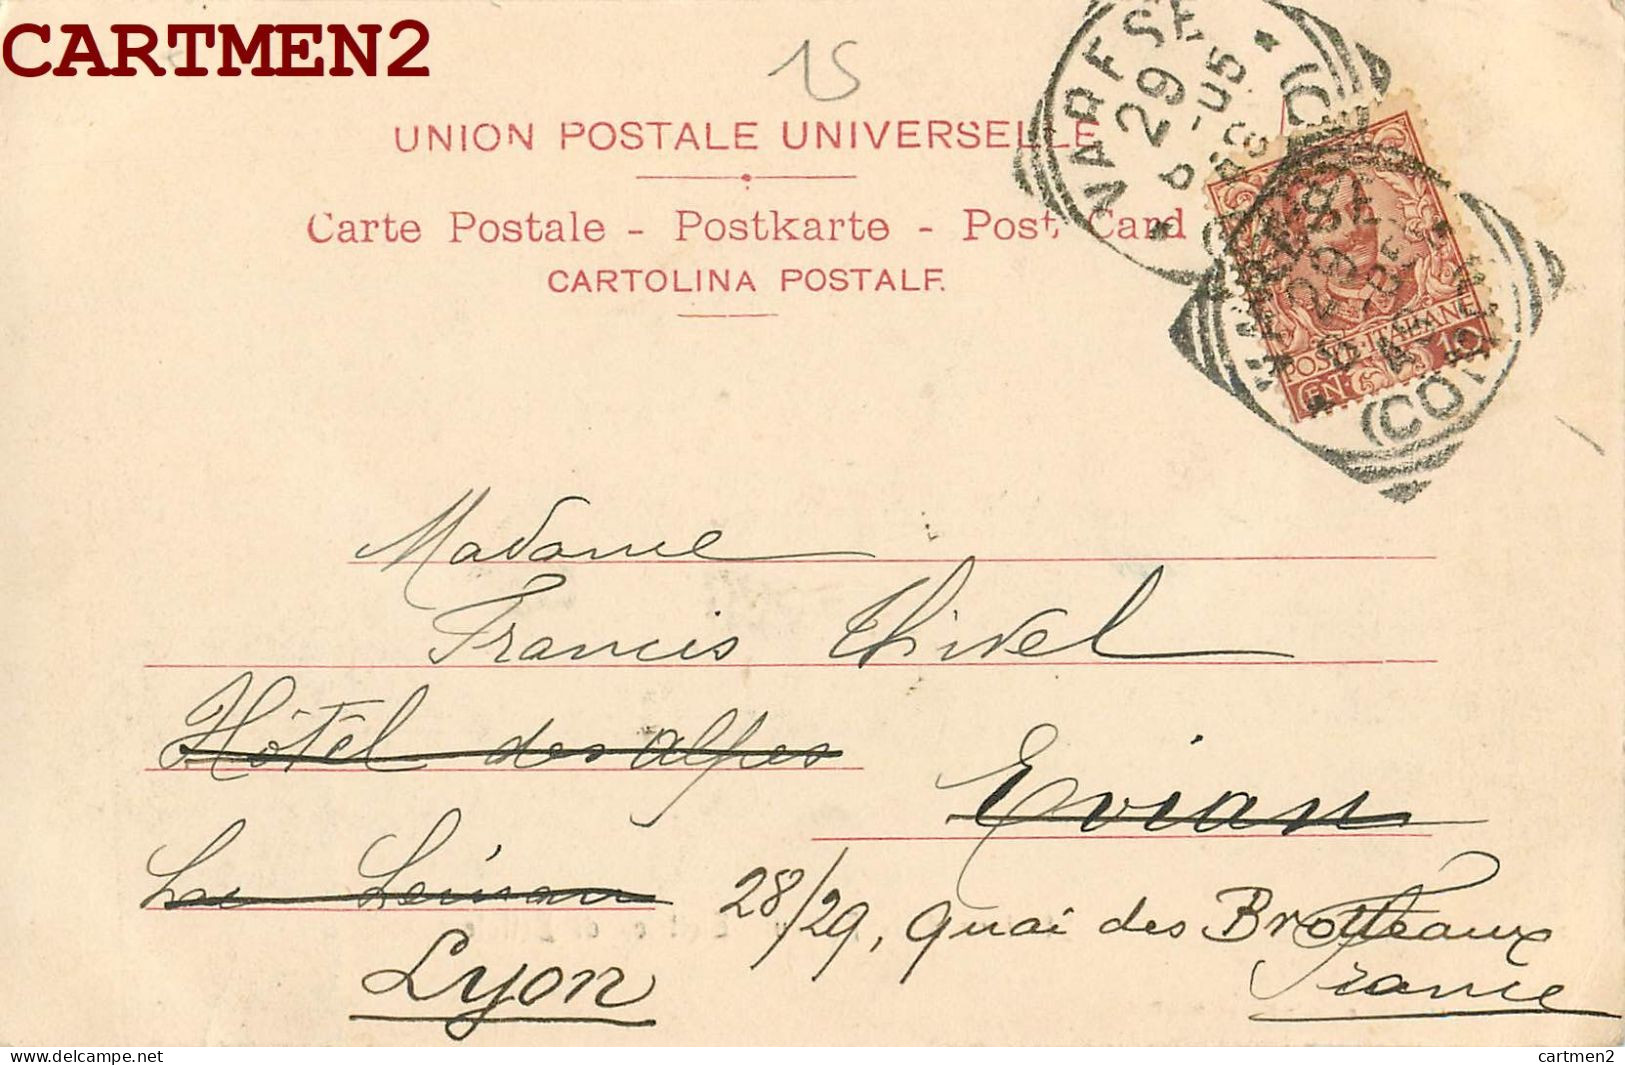 CARTMEN2
15
UNION POSTALE UNIVERSELLE
Carte Postale - Postkarte - Post Card
CARTOLINA POSTALE.
VARESE
29
8-05
(CO
VARESE
29
(COMO)
POSTE·ITALIANE
CEN. 10
Madame
Francis Thivel
Hôtel des Alpes
Evian
Lac Léman
28/29, Quai des Brotteaux
Lyon
France
cartmen2